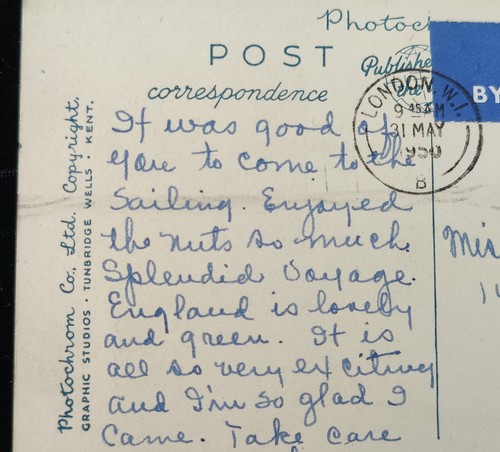 Photoch
POST
Publishe
the
correspondence
BY
LONDON. W.1.
9 45 AM
31 MAY
1950
B
It was good of
you to come to the
Sailing. Enjoyed
the nuts so much.
Splendid Voyage.
England is lovely
and green. It is
all so very exciting
and I'm so glad I
Came. Take care
Photochrom Co., Ltd. Copyright.
GRAPHIC STUDIOS • TUNBRIDGE WELLS • KENT.